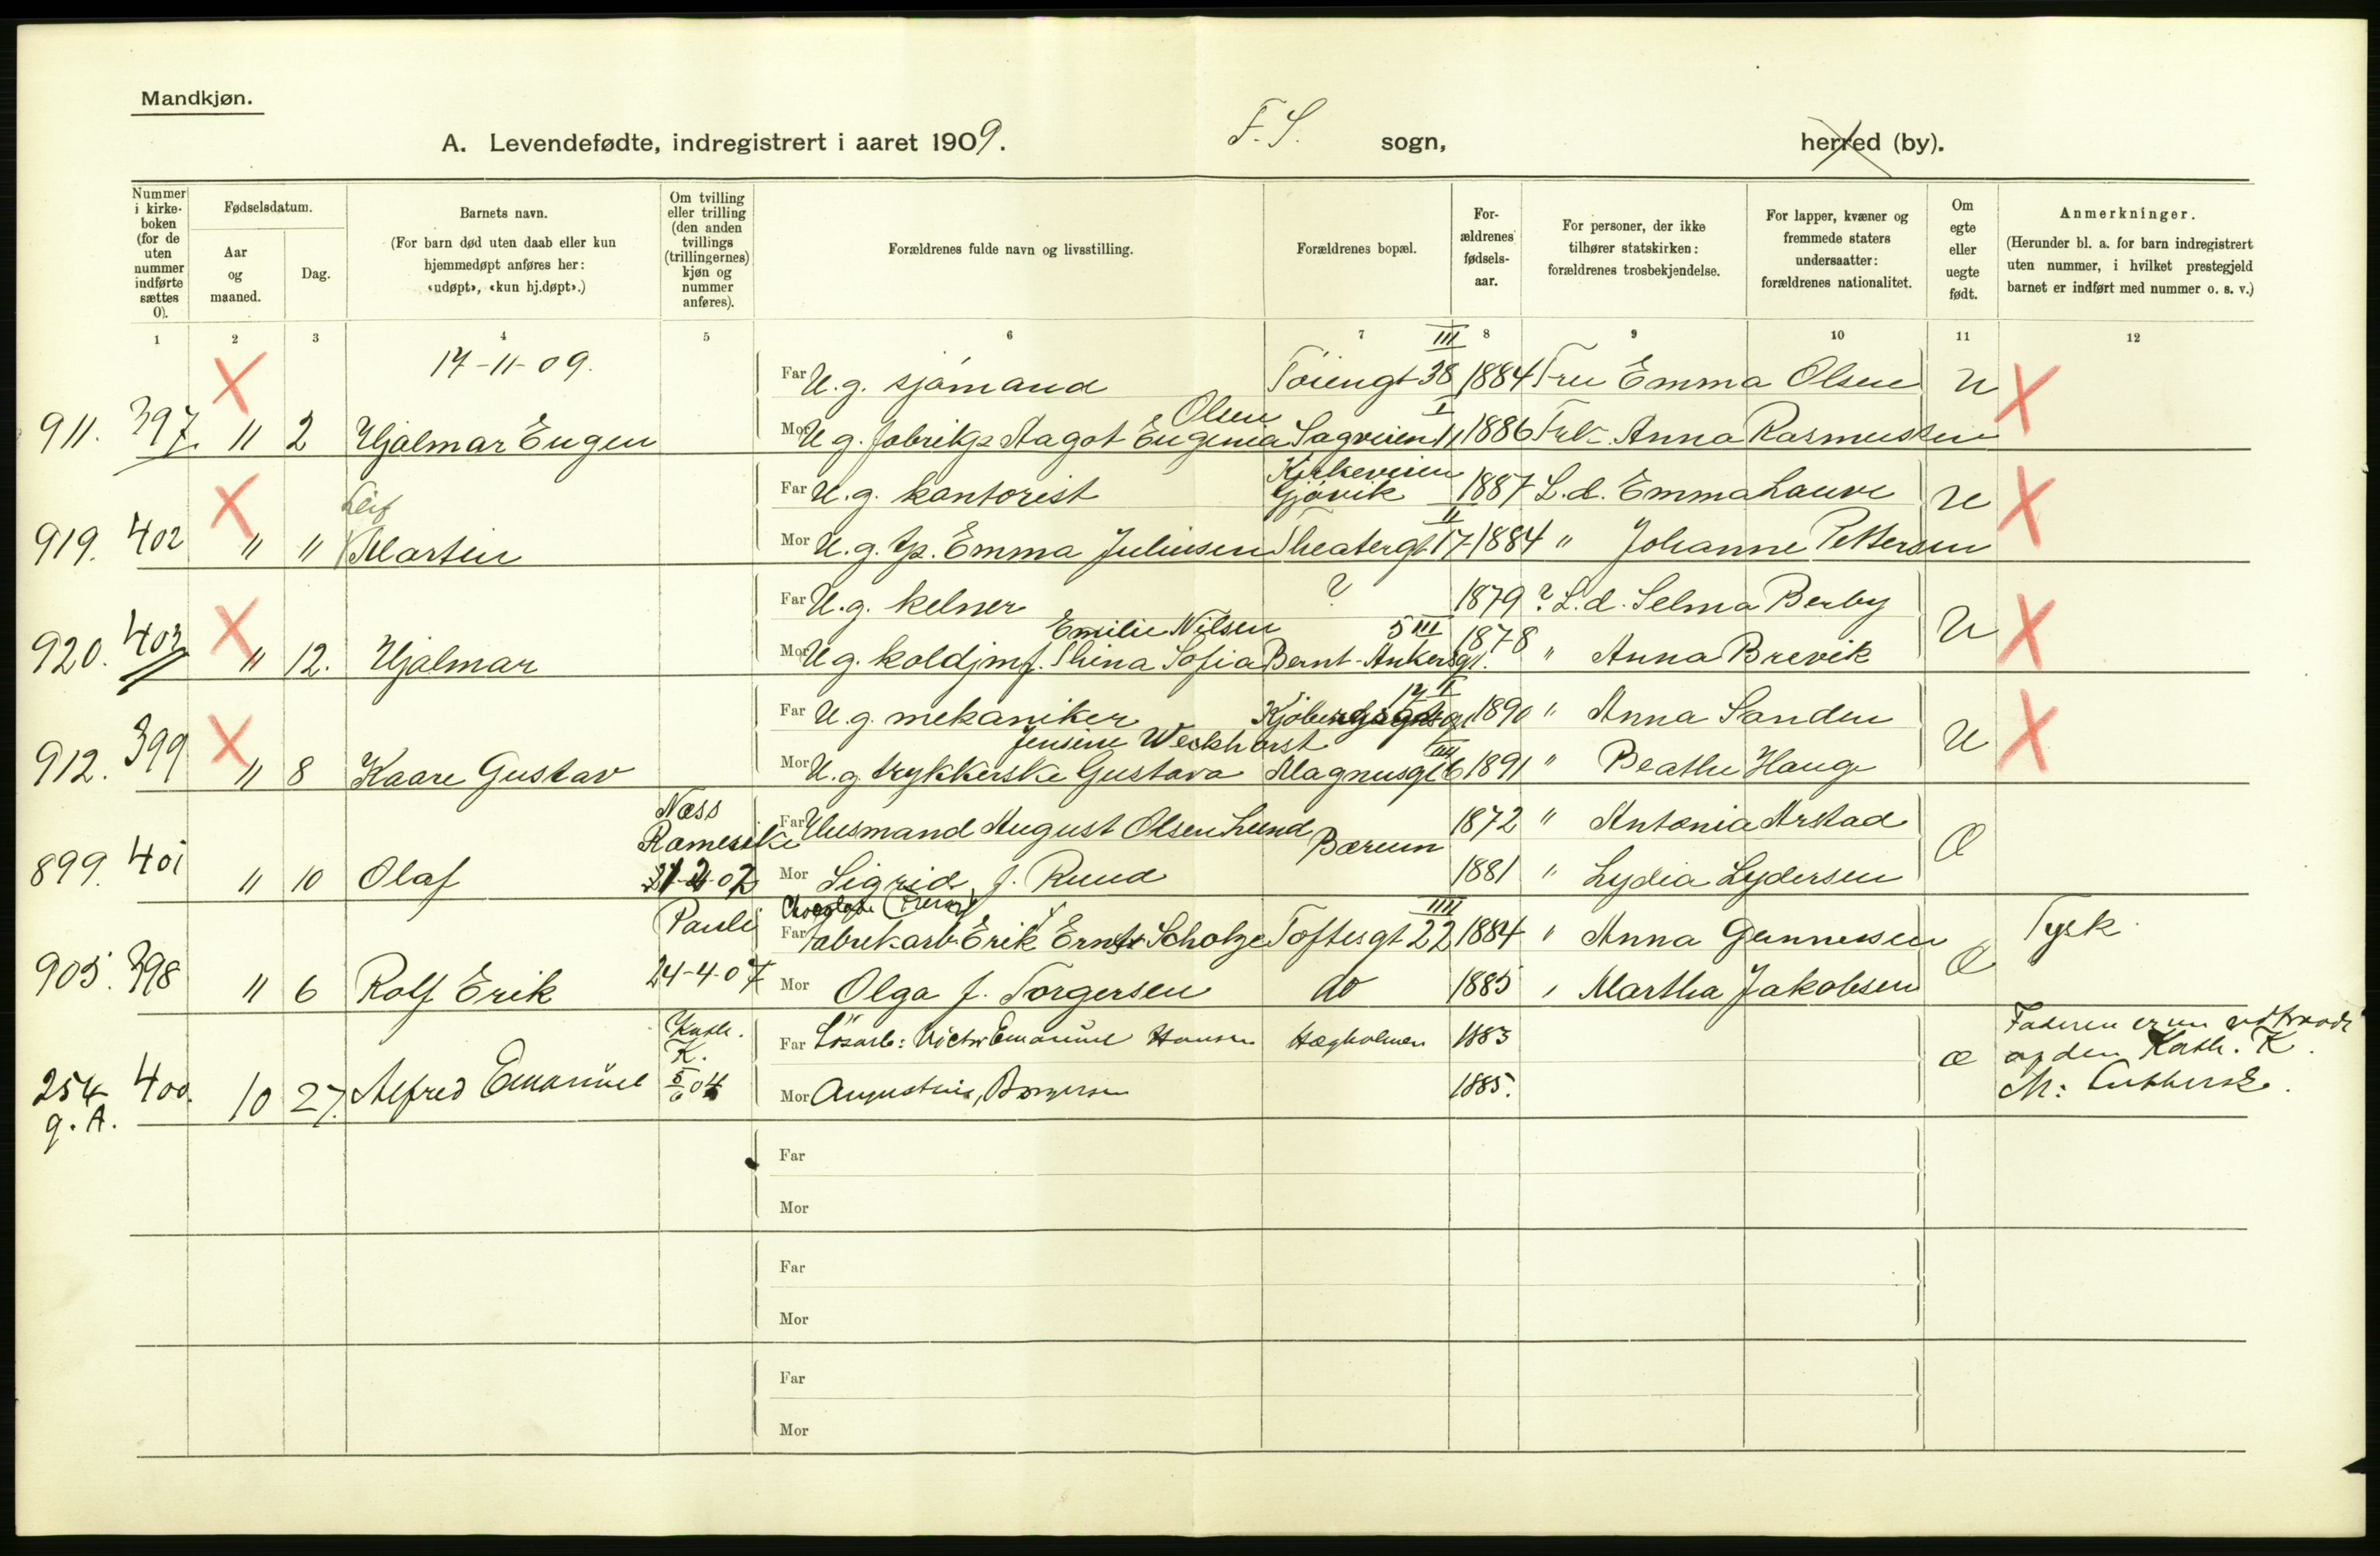 Mandkjøn.
A. Levendefødte, indregistrert i aaret 1909. F. S. sogn, herred (by).
Nummer i kirke-boken (for de uten nummer indførte sættes 0).
Fødselsdatum.
Aar og maaned.
Dag.
Barnets navn.
(For barn død uten daab eller kun hjemmedøpt anføres her: «udøpt», «kun hj.døpt».)
Om tvilling eller trilling (den anden tvillings (trillingernes) kjøn og nummer anføres).
Forældrenes fulde navn og livsstilling.
Forældrenes bopæl.
For-ældrenes fødsels-aar.
For personer, der ikke tilhører statskirken: forældrenes trosbekjendelse.
For lapper, kvæner og fremmede staters undersaatter: forældrenes nationalitet.
Om egte eller uegte født.
Anmerkninger.
(Herunder bl. a. for barn indregistrert uten nummer, i hvilket prestegjeld barnet er indført med nummer o. s. v.)
1 2 3 4 5 6 7 8 9 10 11 12
17-11-09.
Far U. g. sjømand Tøiengt 38 III 1884 Fru Emma Olsen U
Olsen I
911. 397. 11 2 Hjalmar Eugen Mor U g. fabrikp Aagot Eugenia Sagveien 11 1886 Frk. Anna Rasmussen
Kirkeveien
Far U. g. kontorist Gjøvik 1887 L. d. Emma Lauve U
Leif II
919. 402 " " Martin Mor U. g. tp. Emma Juliusen Theatergt 17 1884 " Johanne Pettersen
Far U. g. kelner ? 1879 ? L. d. Selma Berby U
Emilie Nilsen 5 III
920. 403 " 12. Hjalmar Mor U g. koldjmf. Thina Sofia Bernt Ankersgt. 1878 " Anna Brevik
17 II
Far U. g. mekaniker 1890 " Anna Sanden U
Jensine Weckhorst IIII
912. 399 " 8 Kaare Gustav Mor U. g trykkerske Gustava Magnusgt 6 1891 " Beathe Haug
Næss
Far Husmand August Olsen Lund Bærum 1872 " Antonia Arstad Æ
899. 401 " 10 Olaf Mor Sigrid f. Ruud 1881 " Lydia Lydersen
Pauli IIII
Far fabrikarb. Erik Ernst Scholze Toftesgt 22 1884 " Anna Gunnessen Æ Tysk
905. 398 " 6 Rolf Erik 24-4-07 Mor Olga f. Torgersen do 1885 " Martha Jakobsen
Kath. K.
Far Løsarb: Victor Emanuel Hansen Hægholmen 1883 æ Faderen er en udtraadt
254 g. A. 400. 10 27. Alfred Emanuel 5/6 04 Mor Augustine, Borgersen 1885. av den Kath. K.
M: Luthersk.
Far
Mor
Far
Mor
Far
Mor